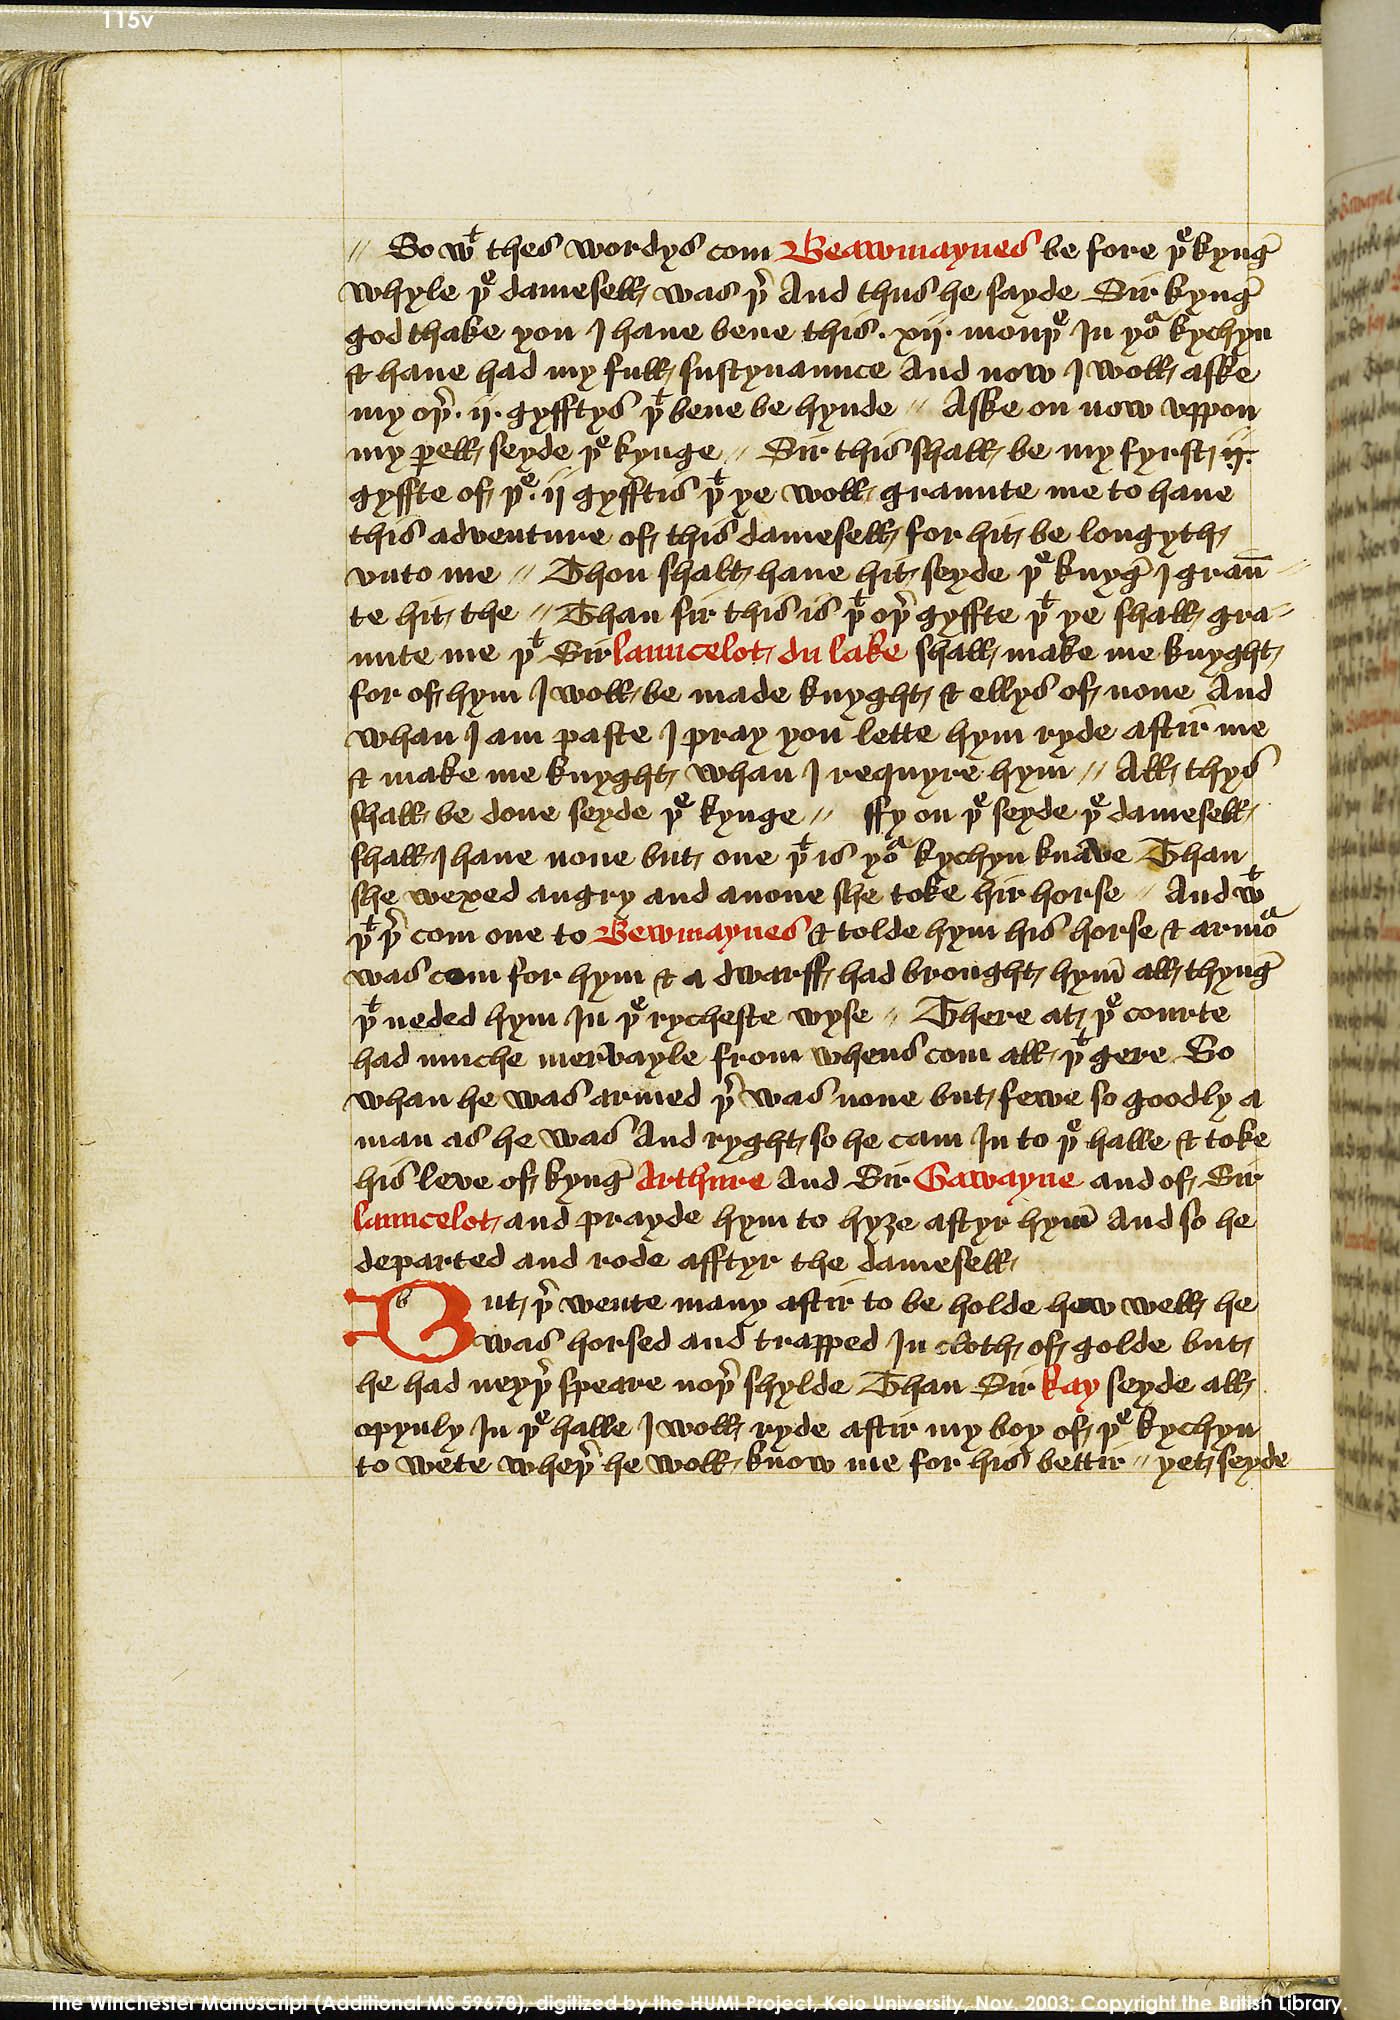 115v
// So wͭ thes wordys com Beawmaynes be fore þͤ kyngͤ
whyle þͤ damesell was þͬ And thus he sayde Sir kyngͤ
god thake you I haue bene this · xij · monþͤ In yoͬ kychyn
& haue had my full sustynaunce And now I woll aske
my oþͬ · ij · gyfftys þͭ bene be hynde // Aske on now vppon
my ꝑell seyde þͤ kynge // Sir this shall be my fyrst ij·
gyffte of þͤ · ij gyfftis þͭ ye woll graunte me to haue
this adventure of this damesell for hit be longyth
vnto me // Thou shalt haue hit seyde þͤ knygͤ I graū=
te hit the // Than sir this is þͭ oþͬ gyffte þͭ ye shall gra=
unte me þͭ Sir launcelot du lake shall make me knyght
for of hym I woll be made knyght & ellys of none And
whan I am paste I pray you lette hym ryde aftir me
& make me knyght whan I requyre hym // All thys
shall be done seyde þͤ kynge // ffy on þͤ seyde þͤ damesell
shall I haue none but one þͭ is yoͬ kychyn knave Than
she wexed angry and anone she toke hir horse // And wͭ
þͭ þͬ com one to Bewmaynes & tolde hym his horse & armoͬ
was com for hym & a dwarff had brought hym̄ all thyngͤ
þͭ neded hym In þͤ rycheste wyse // There at þͤ courte
had muche mervayle from whens com all þͭ gere So
whan he was armed þͬ was none but fewe so goodly a
man as he was And ryght so he cam In to þͤ halle & toke
his leve of kyngͤ Arthure And Sir Gawayne and of Sir
launcelot and prayde hym to hyȝe aftyr hym̄ And so he
departed and rode afftyr the damesell
But þͬ wente many aftir to be holde how well he
was horsed and trapped In cloth of golde but
he had neyþͬ speare noþͬ shylde Than Sir kay seyde all
opynly In þͤ halle I woll ryde aftir my boy of þͤ kychyn
to wete wheþͬ he woll know me for his bettir // yet seyde
The Winchester Manuscript (Additional MS 59678), digitized by the HUMI Project, Keio University, Nov. 2003; Copyright the British Library.